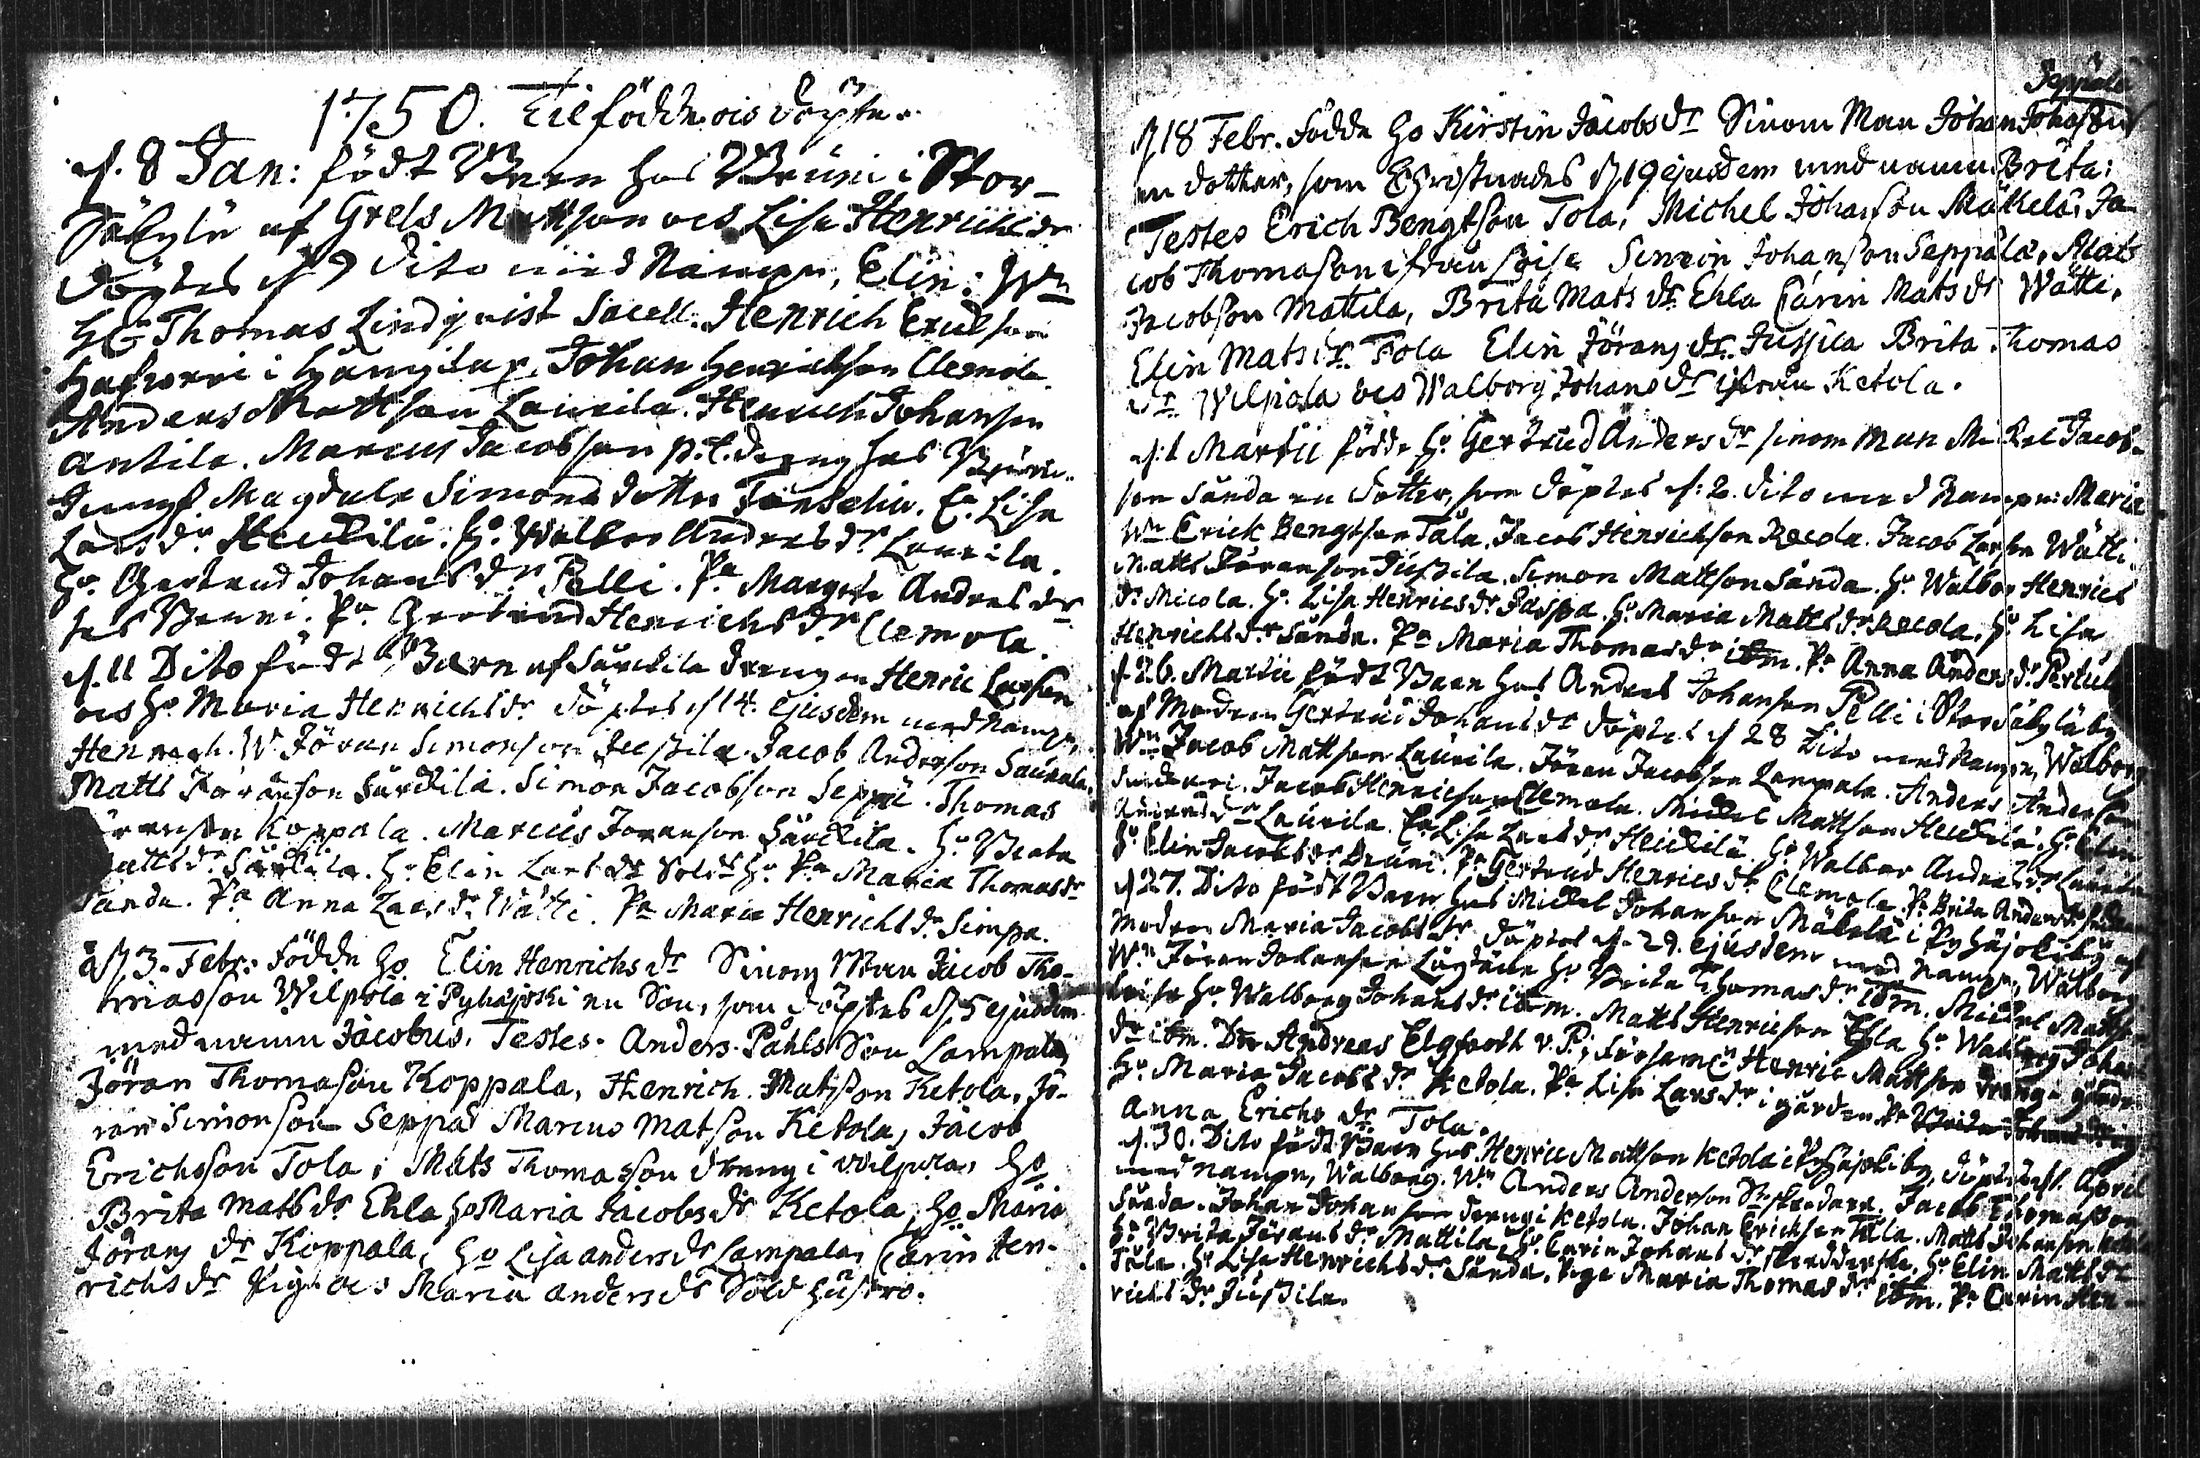 1750. Äre födde ocs döpte.
d. 8 Jan: födt Barn hos Bruni i Stor-
Säkylä af Grels Mattson ocs Lisa Henrichsdr
döptes d 9 dito med Nampn, Elin: Wn
Hr Thomas Lindqvist Sacell. Henrich Erichson
i Johan Henrichson Clemola
Anders Mattson Laurila. Henrich Johanson
Antila. Marcus Jacobson p.t. dreng hos Bruni.
Jungf Magdale Simons dotter E. Lisa
Larsdr Heickilä. Ho Walbor Andersdr Laurila.
Ho Gertrud Johansdr Pelli. Pa Margeta Andersdr
hos Bruni. Pa Gertrud Henrichsdr Clemola.
d. 11 Dito födt Barn af Särckilä drengen Henric Larson
ocs Ho Maria Henrichsdr döptes d 14. ejusdem med nampn,
Henrich. Wn Jöran Simonson Jussila. Jacob Anderson
Matts Jöranson Särckilä. Simon Jacobson Seppä. Thomas
Jöranson Koppala. Marcus Joranson Särckilä. Ho Beata
Mattsdr Särckilä. Ho Elin Larsdr Solds Ho Pa Maria Thomasdr
Sanda. Pa Anna Larsdr Wätti. Pa Maria Henrichsdr Simpa.
d 3. Febr. Födde Ho Elin Henrichs dr Sinom Man Jacob Tho-
masson Wilpola i Pyhäjoki en Son, som döptes d 5 ejusdem
med namn Jacobus. Testes. Anders Påhls Son Lampala,
Jöran Thomason Koppala, Henrich Matsson Ketola, Jö-
ran Simonson Seppä Marcus Matson Ketola, Jacob
Erichsson Tola, Mats Thomasson dreng i Wilpola, Ho
Brita Mats dr Ehla Ho Maria Jacobs dr Ketola, Ho Maria
Jörans dr Koppala, Ho Lisa anders dr Lampala, Carin Hen-
richs dr Pig ocs Maria anders dr Sold Hustro.
Seppälä
d 18 Febr. Födde Ho Kirstin Jacobs dr Sinom Man Johan Johansson
en dotter, som Christnades d 19 ejusdem med namn Brita:
Testes Erich Bengtson Tola, Michel Johanson Mäkelä, Ja-
cob Thomason ifrån Simon Johanson Seppälä, Mats
Jacobson Mattila, Brita Mats dr Ehla Carin Mats dr Wätti,
Elin Mats dr Tola Elin Jörans dr Jussila Brita Thomas
dr Wilpola ocs Walborg Johans dr ifrån Ketola.
d. 1 Martii födde Ho Gertrud Anders dr sinom man Mickel Jacob-
son Sanda en dotter, som döptes d: 2. dito med Nampn: Maria
Wn Erick Bengtson Tåla. Jacob Henrichson Jacob Larson Wätti.
Matts Jöranson Jussila. Simon Mattson Sanda. Ho Walbor Henrics
dr Micola. Ho Lisa Henricsdr Jaspa. Ho Maria Mattsdr Ho Lisa
Henrichsdr Sanda. Pa Maria Thomasdr ibm. Pa Anna Andersdr
d 26. Martii födt Barn hos Anders Johanson Pelli i Stor Säkylä by
af Modren Gertrud Johansdr döptes d 28 dito med Nampn, Walborg
Wn Jacob Mattson Laurila. Jöran Jacobson Lampala. Anders Anderson
Jacob Henricson Clemola. Mickel Mattson Heickilä. Ho Elin
Andersdr Laurila. E. Lisa Larsdr Heickilä. Ho Walbor Andersdr Laurila
Ho Elin Jacobsdr Bruni. Pa Gertrud Henricsdr Clemola. Pa Brita Andersdr
d 27. Dito födt Barn hos Mickel Johanson Mäkelä i Pyhäjoki by af
Modren Maria Jacobsdr döptes d. 29. ejusdem med nampn, Walborg
Wn Jöran Johanson Ho Brita Thomasdr ibm. Mickel Matts-
Ho Walborg Johansdr ibm. Matts Henricson Ehla Ho Walborg Johans
dr ibm. Dn Andreas Elgfooth v.P. Henric Mattson dreng i
Ho Maria Jacobsdr Ketola. Pa Lisa Larsdr i gården. Pa
Anna Erichs dr Tola.
d. 30. Dito födt Barn hos Henric Mattson Ketola i Pyhäjoki by, döptes d 1. April
med Nampn, Walborg. Wn Anders Anderson Jacob Thomasson
Sanda. Johan Johanson dreng i Ketola. Johan Erichson Tåla. Matts Johanson
Ho Brita Jöransdr Mattila. Ho Carin Johansdr Ho Elin Mattsdr
Tåla. Ho Lisa Henrichsdr Sanda. Piga Maria Thomasdr ibm. Pa Carin Hen-
richsdr Jussila.